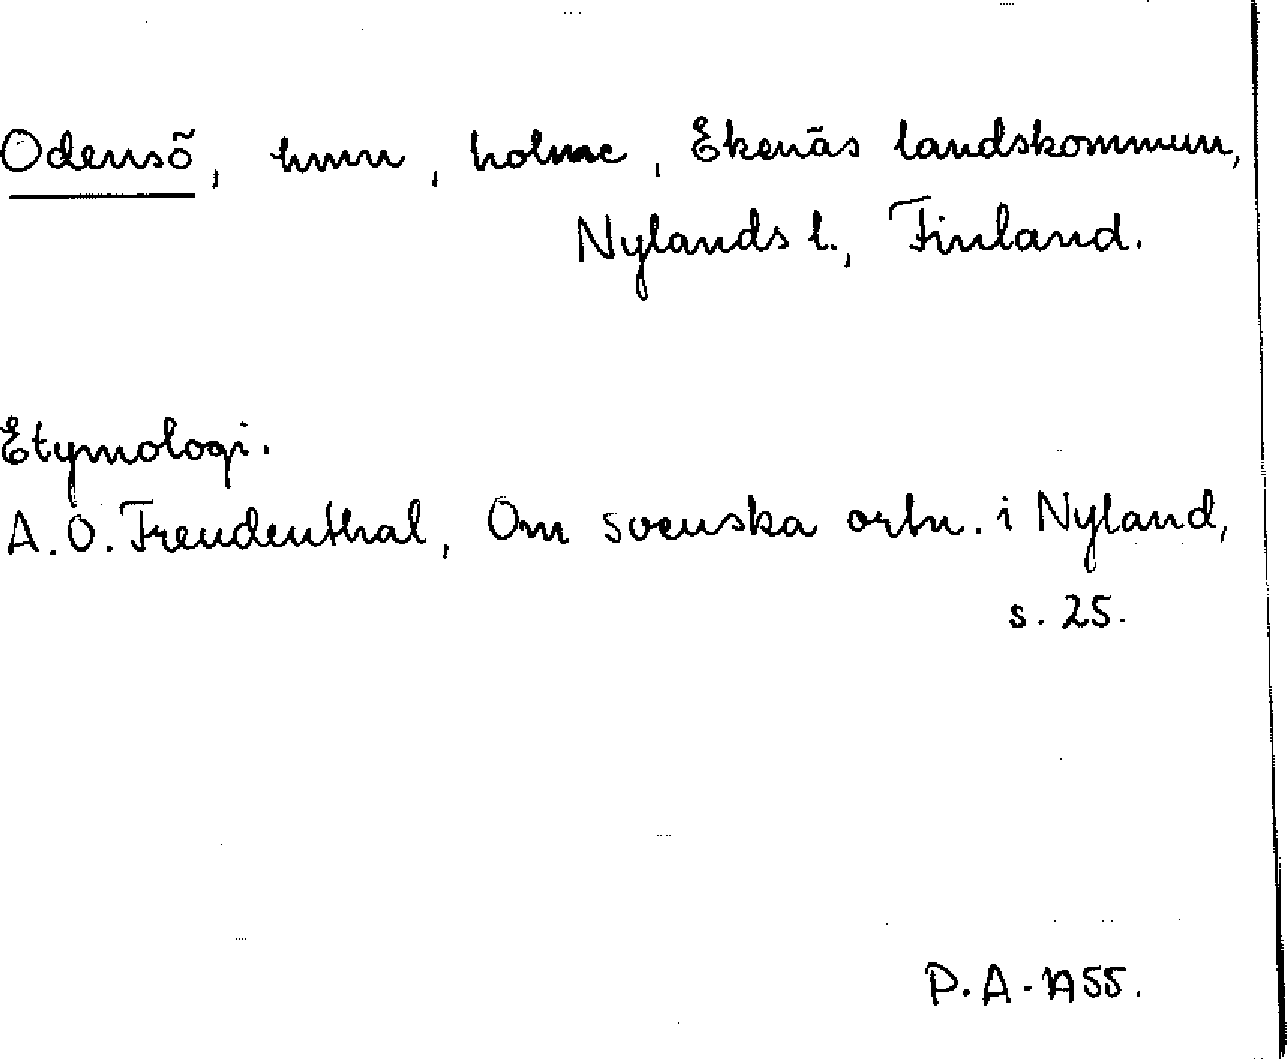 Odensö, hmn, holme, Ekenäs landskommun,
Nylands l., Finland.
Etymologi.
A. O. Freudenthal, Om svenska ortn. i Nyland,
s. 25.
P. A. 1955.